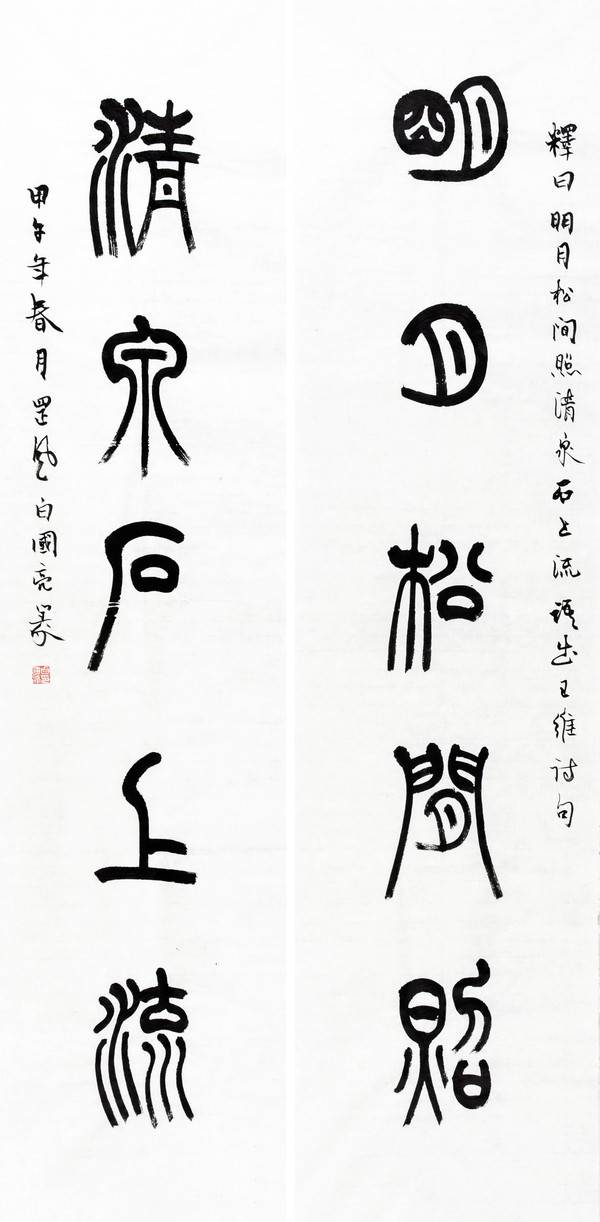 釋曰明月松间照清泉石上流语出王維诗句
明月松間照
清泉石上流
甲午年春月罡风白國亮篆